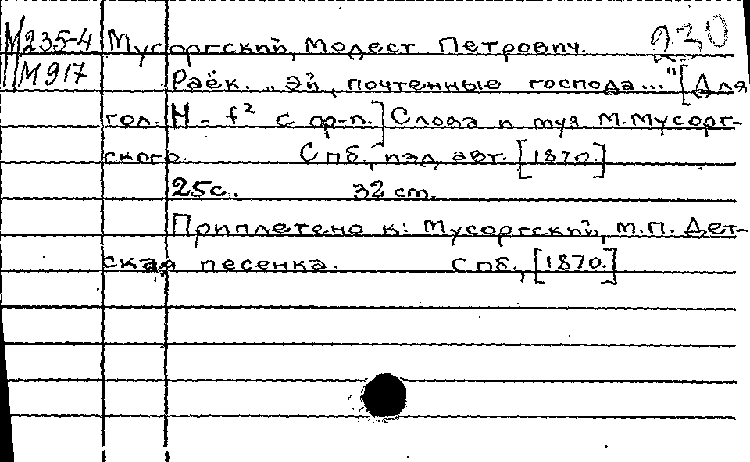 М235-4 Мусоргский, Модест Петрович. 930
М917 Раёк. „Эй, почтенные господа..." [Для
гол. H - f² с ф-п.] Слова и муз. М. Мусорг-
ского. Спб., изд. авт. [1870.]
25 с. 32 cm.
Приплетено к: Мусоргский, М.П. Дет-
ская песенка. Спб., [1870.]